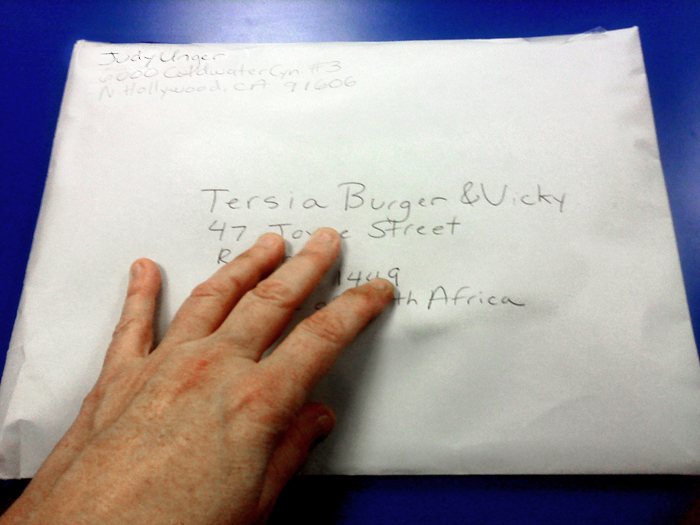 Judy Unger
6000 Coldwater Cyn #3
N Hollywood, CA 91606
Tersia Burger & Vicky
47 Street
1449
Africa